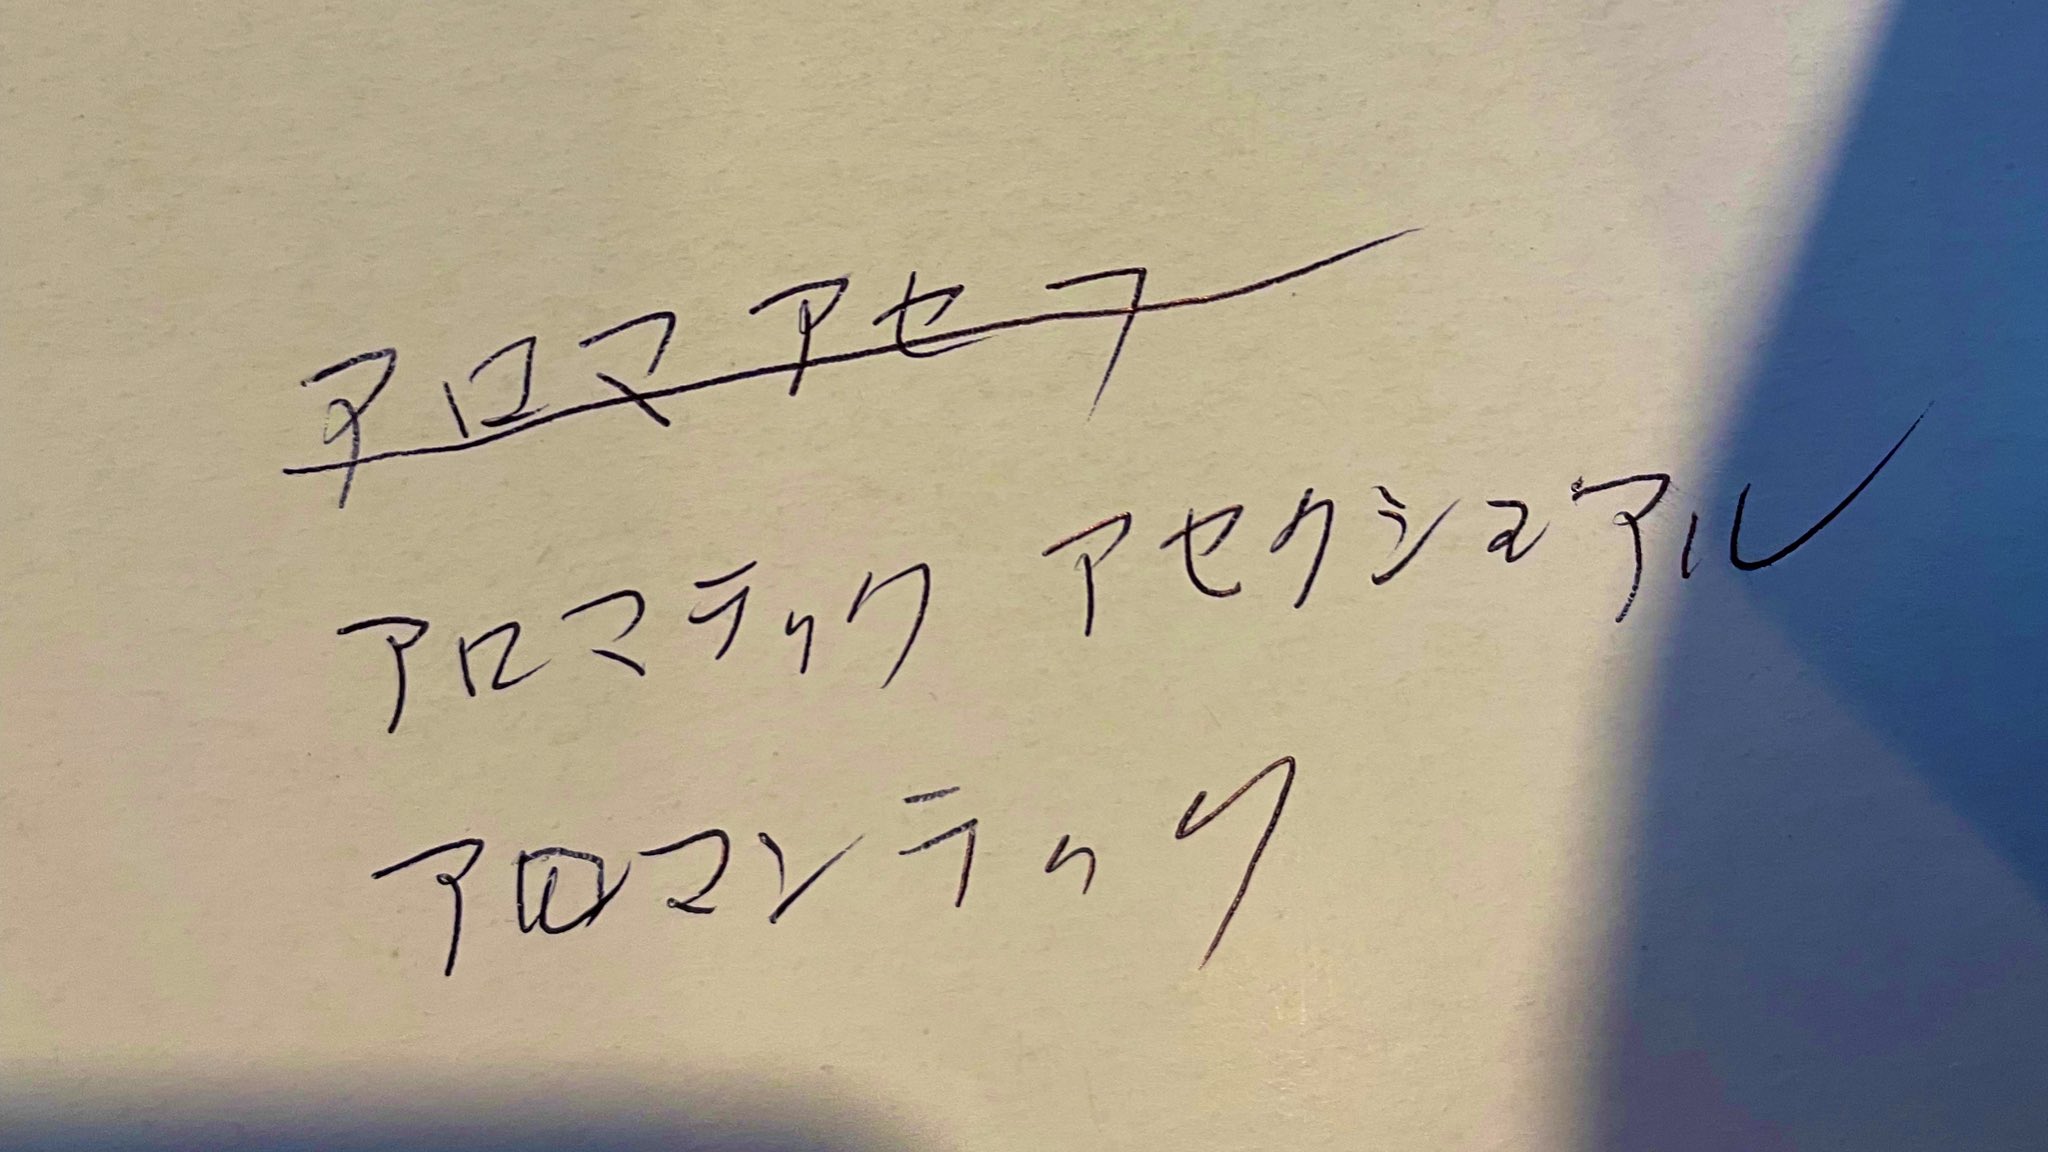 アロマアセフ
アロマティック アセクシュアル
アロマンティック